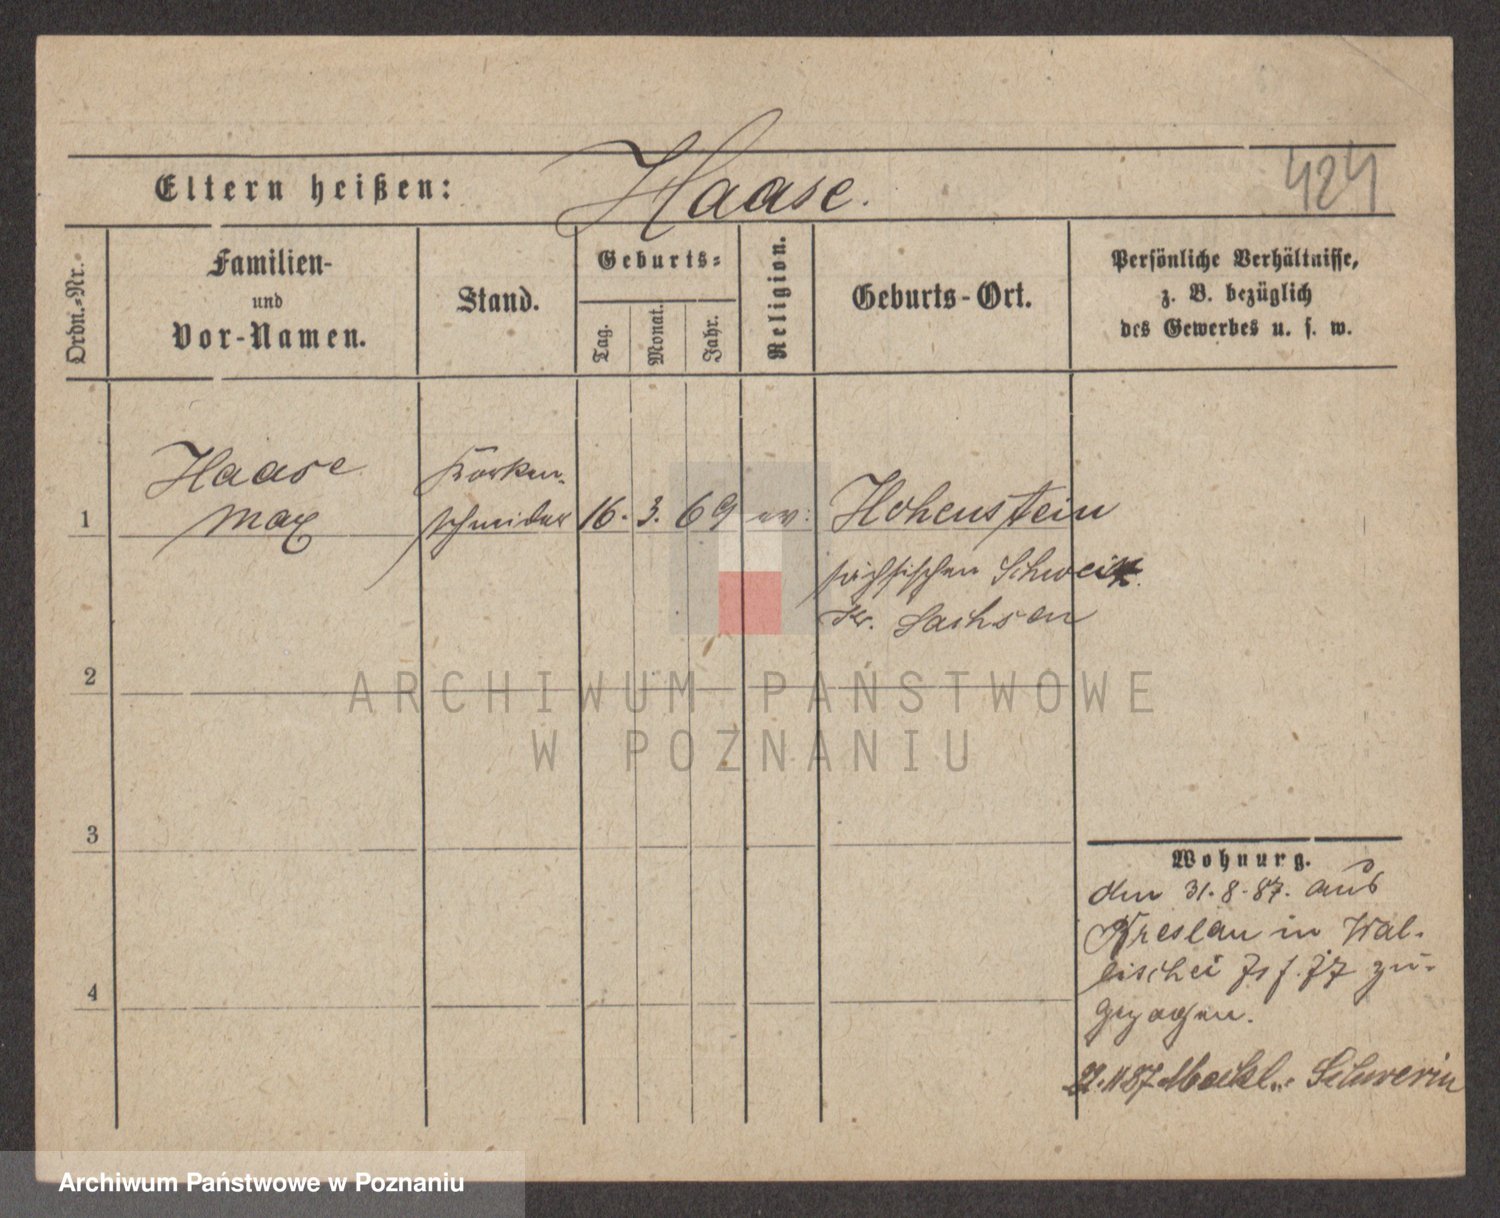 Eltern heißen: Haase. 424
Ordn.-Nr.
Familien-
und
Vor-Namen.
Stand.
Geburts-
Tag.
Monat.
Jahr.
Religion.
Geburts-Ort.
Persönliche Verhältnisse,
z. B. bezüglich
des Gewerbes u. s. w.
Haase Korken-
1 Max schneider 16. 3. 69 ev. Hohenstein
sächsischen Schweiz
Kr. Sachsen
2
ARCHIWUM PAŃSTWOWE
W POZNANIU
3
Wohnung.
den 31.8.87. aus
Breslau in Wal-
lischei zu-
4
gezogen.
2.11.87 Meckl. Schwerin
Archiwum Państwowe w Poznaniu